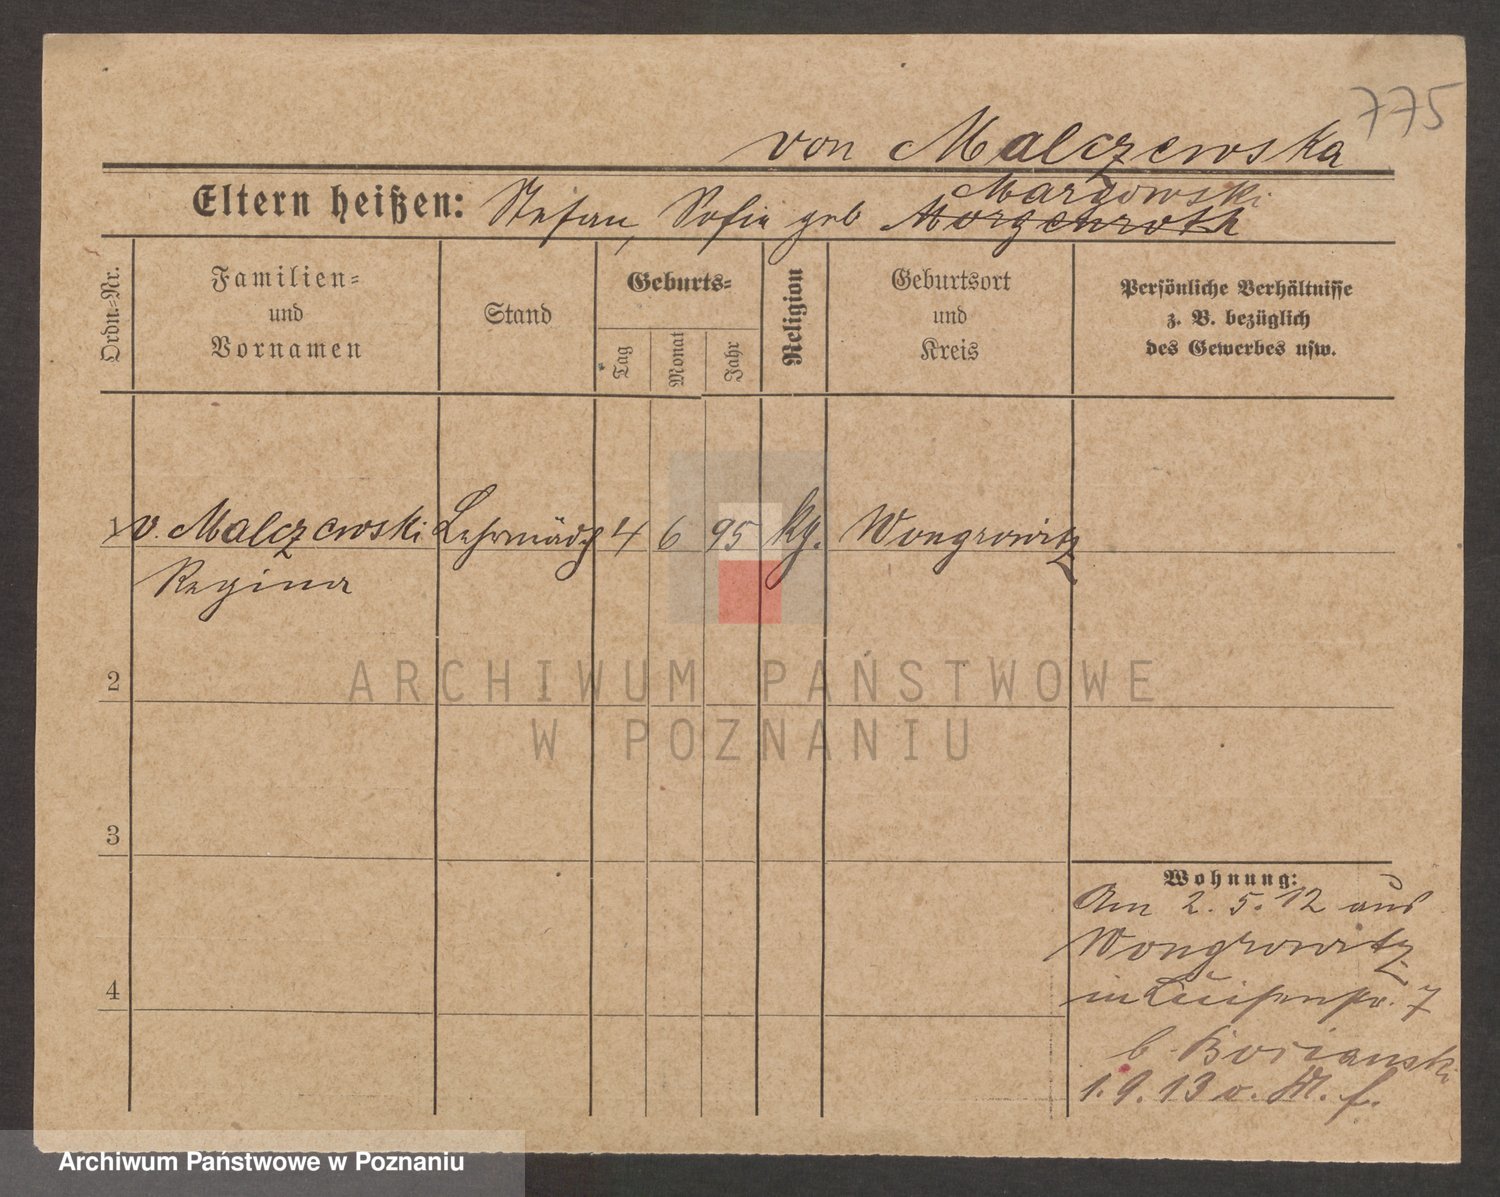 775
von Malczewska
Eltern heißen: Stefan, Sofie geb Morgenroth
Margowski
Ordn.-Nr.
Familien-
und
Vornamen
Stand
Geburts-
Tag
Monat
Jahr
Religion
Geburtsort
und
Kreis
Persönliche Verhältnisse
z. B. bezüglich
des Gewerbes usw.
1 v. Malczewski Lehrmädch 4 6 95 kg. Wongrowitz
Regina
2
ARCHIWUM PAŃSTWOWE
W POZNANIU
3
Wohnung:
Am 2. 5. 12 aus
Wongrowitz
in Luisenstr. 7
4
b. Borianski
1. 9. 13 v. M. f.
Archiwum Państwowe w Poznaniu